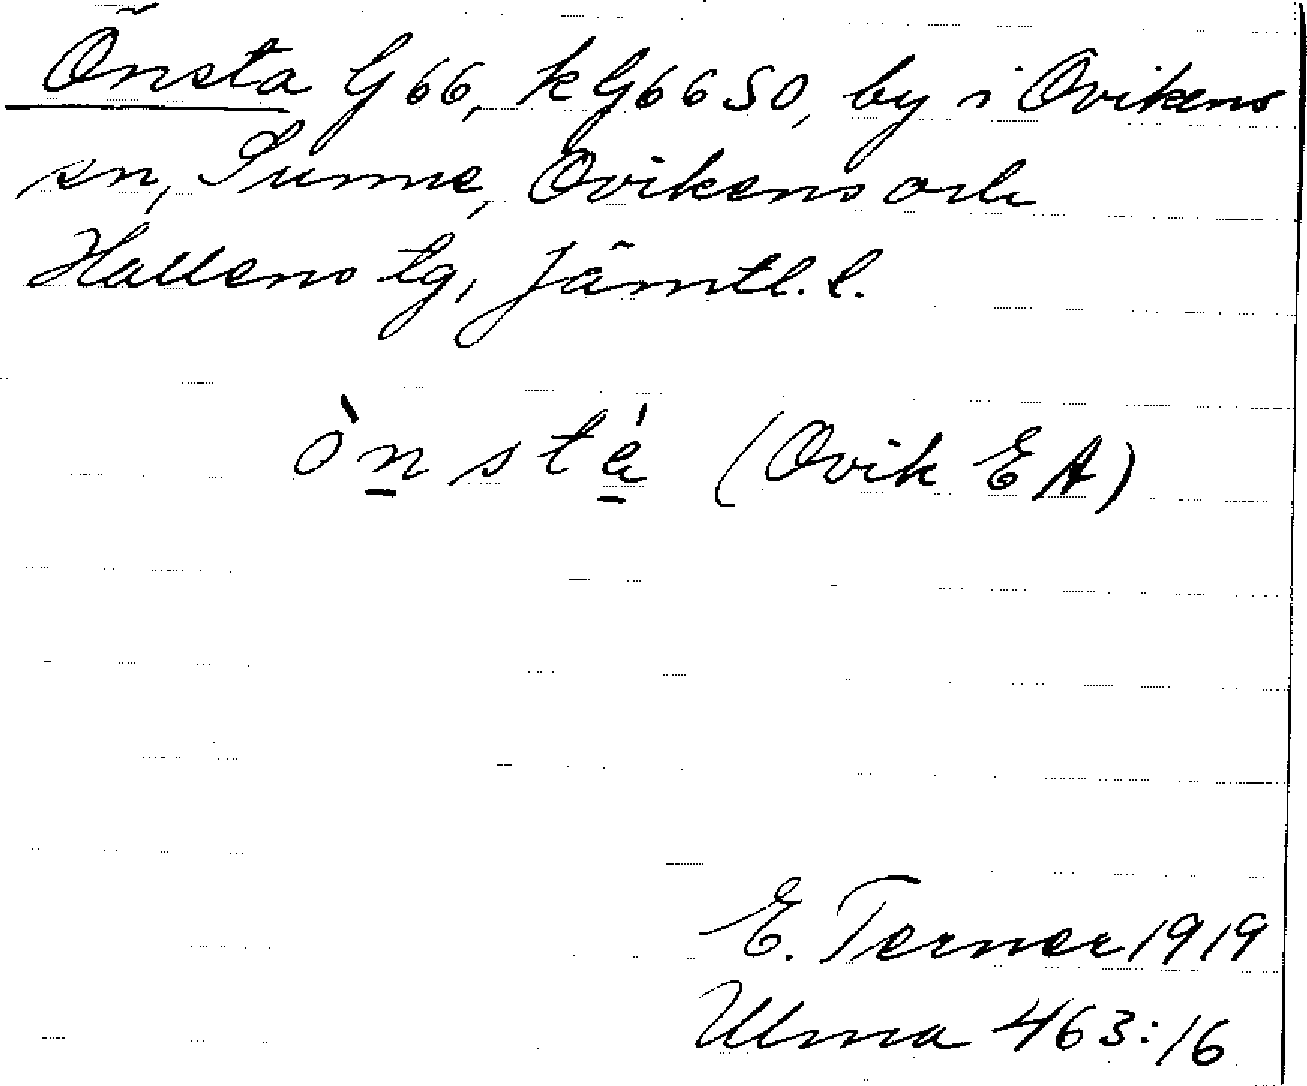 Önsta G 66, k G 66 SO, by i Ovikens
sn, Sunne, Ovikens och
Hallens tg, Jämtl. l.
ò̀n̲stá̲ (Ovik EA)
E. Terner 1919
Ulma 463:16